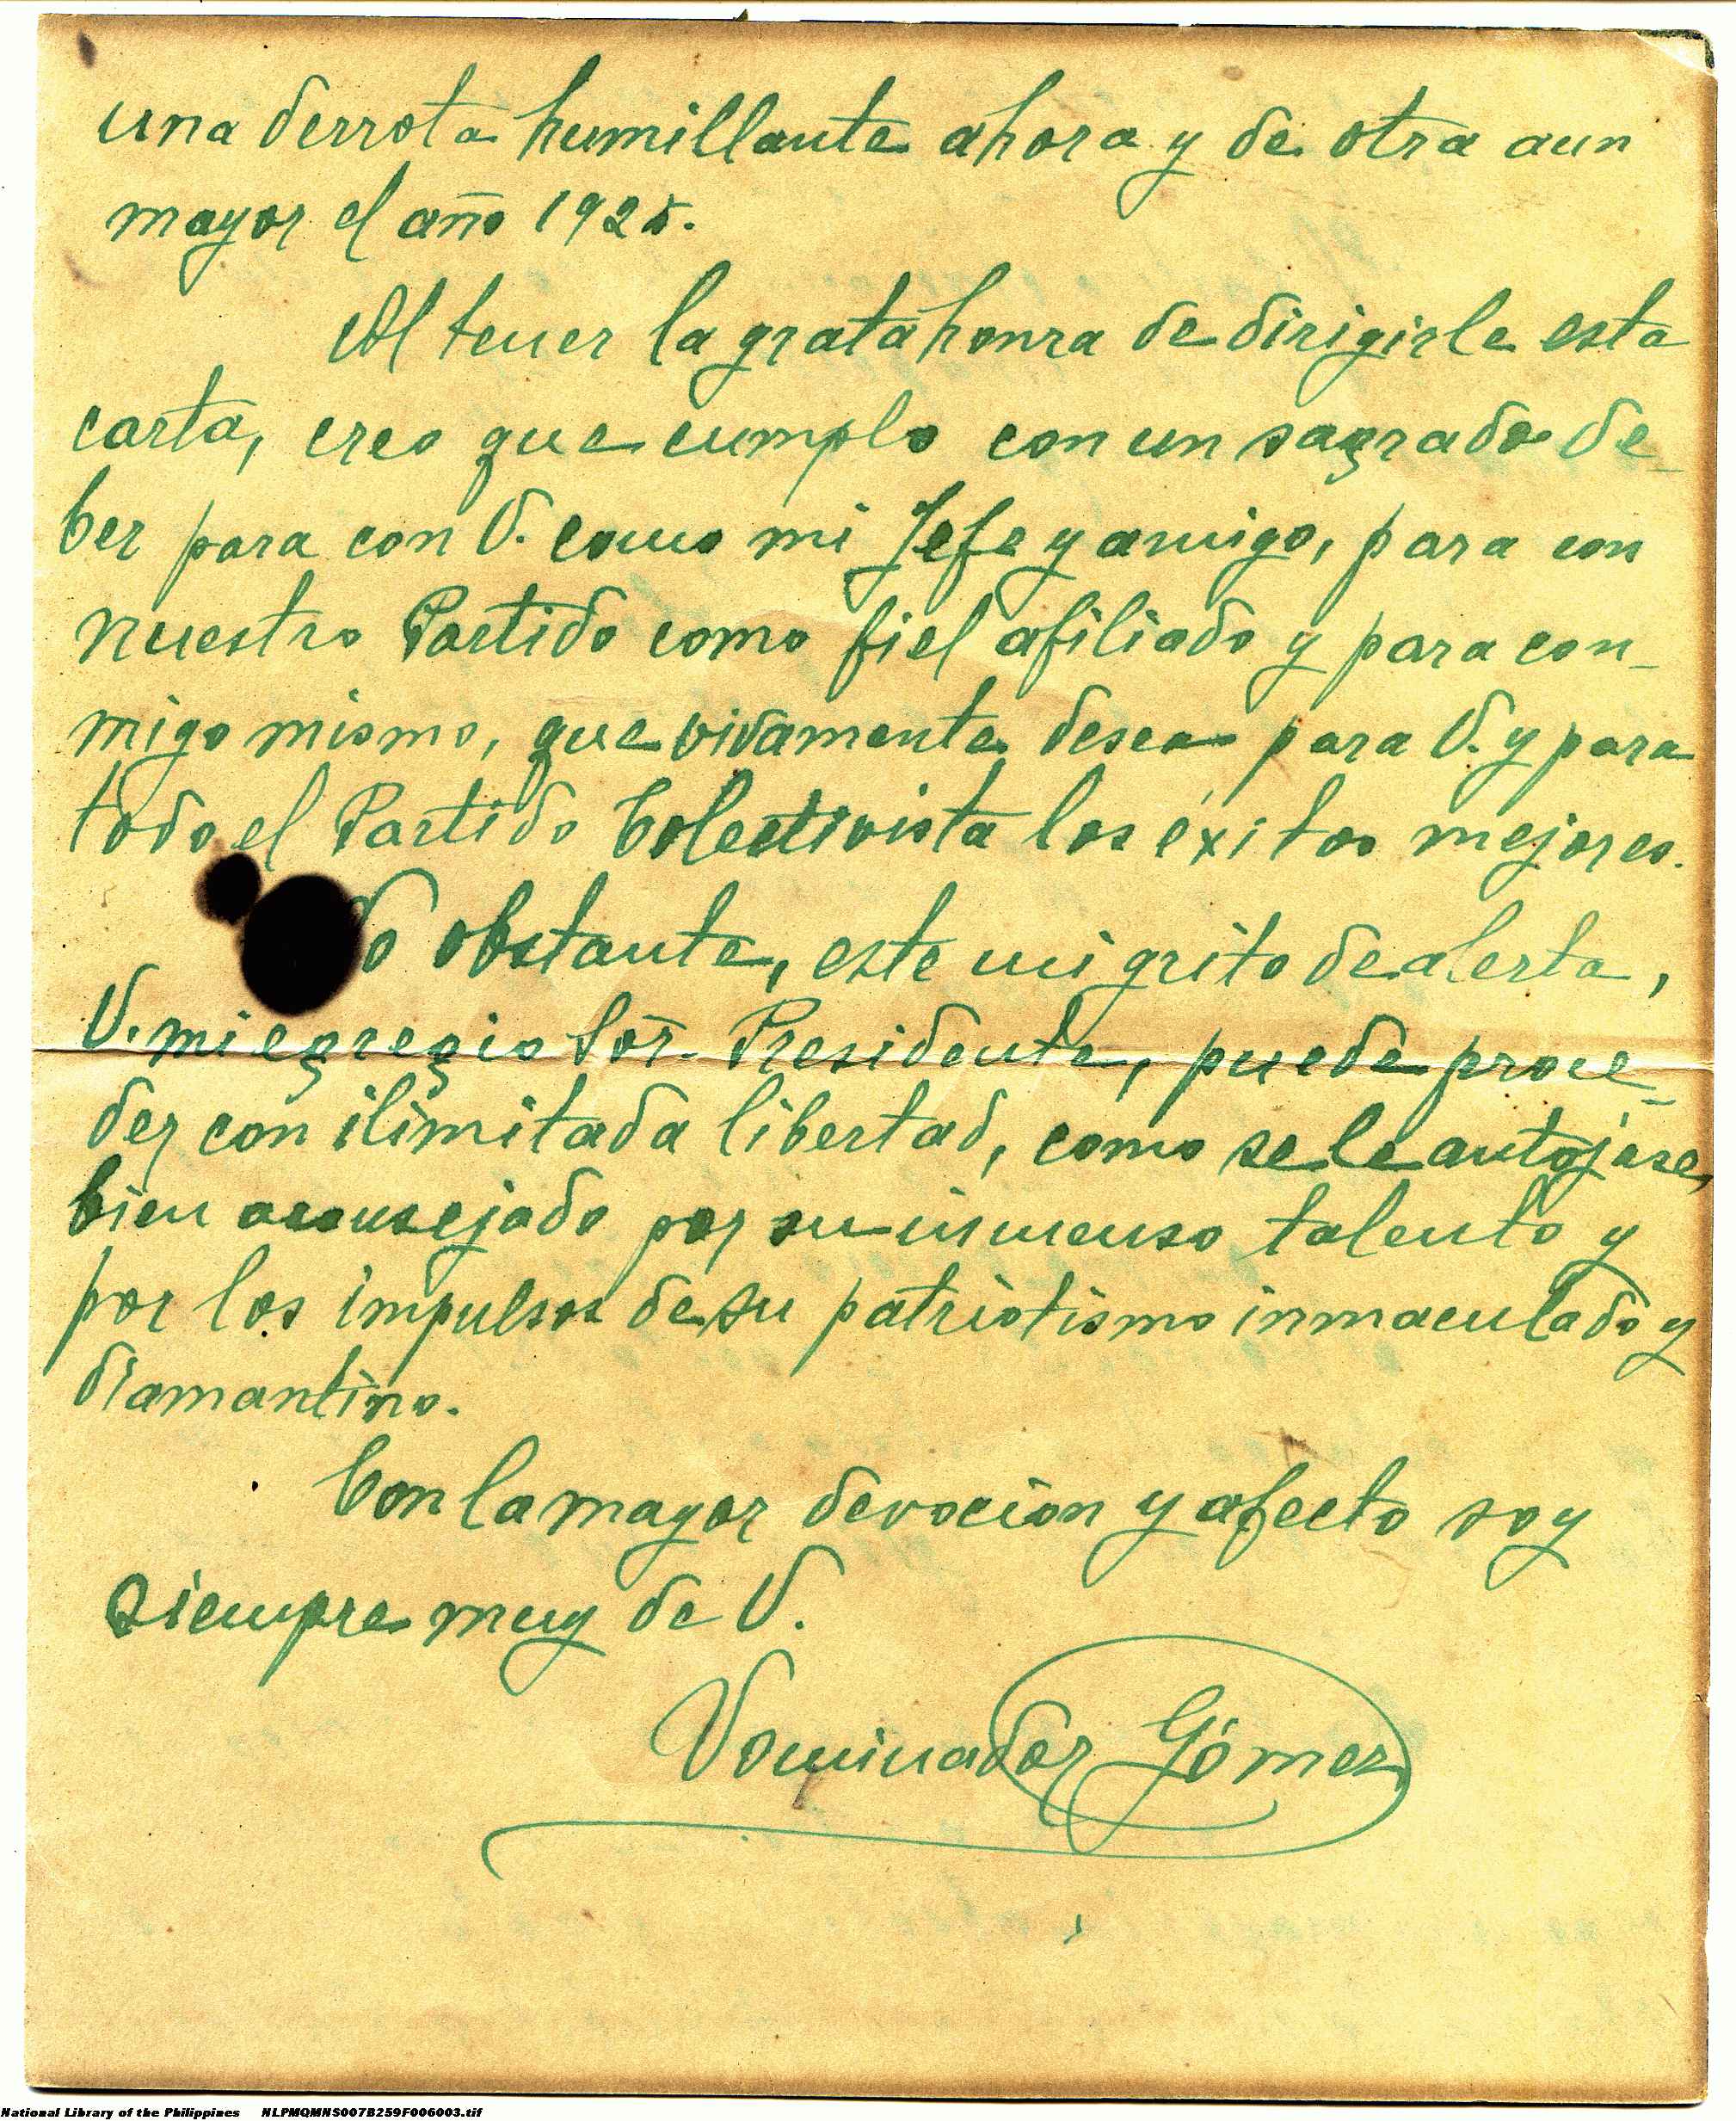 una derrota humillante ahora y de otra aun
mayor el año 1925.
Al tener la grata honra de dirigirle esta
carta, creo que cumplo con un sagrado de-
ber para con V. como mi Jefe y amigo, para con
nuestro Partido como fiel afiliado y para con-
migo mismo, que vidamente desea para V. y para
todo el Partido Colectivista los éxitos mejores.
No obstante, este mi grito de alerta,
V. mi egregio Sor. Presidente, puede proce-
der con ilimitada libertad, como se le antojase,
bien aconsejado por su inmenso talento y
por los impulsos de su patriotismo inmaculado y
diamantino.
Con la mayor devocion y afecto soy
siempre muy de V.
Dominador Gómez
National Library of the Philippines NLPMQMNS007B259F006003.tif